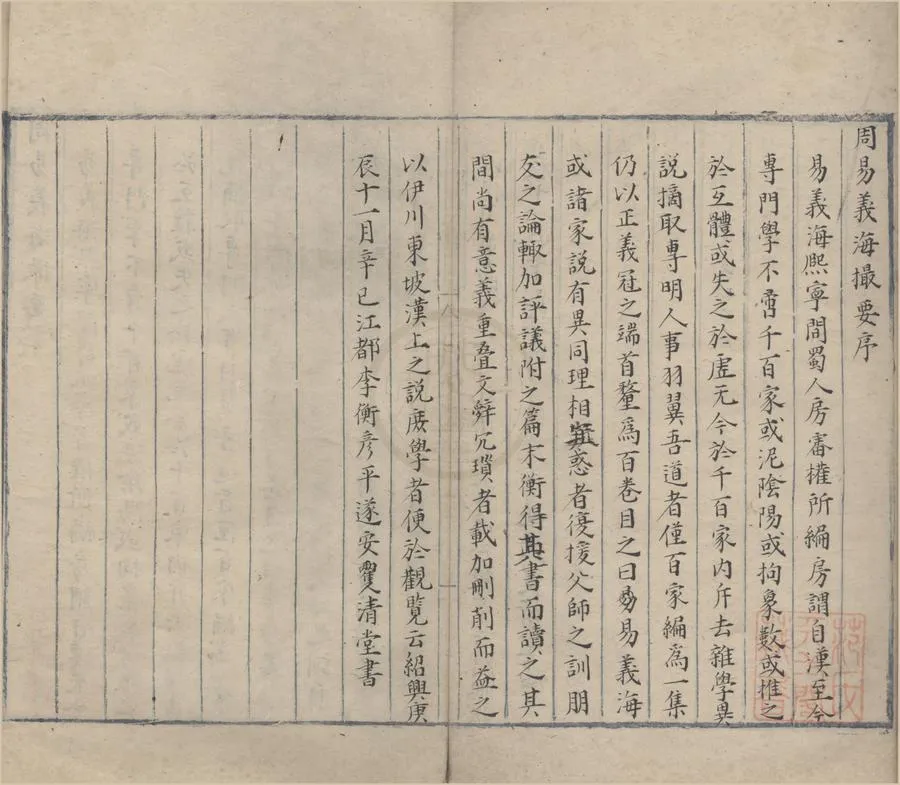 周易義海撮要序
易義海熈寧間蜀人房審權所編房謂自漢至今
專門學不啻千百家或泥陰陽或拘象數或推之
於互體或失之於虛无今於千百家内斥去雜學異
說摘取專明人事羽翼吾道者僅百家編爲一集
仍以正義冠之端首釐爲百卷目之曰周易義海
或諸家說有異同理相疑惑者復援父師之訓朋
友之論輙加評議附之篇末衡得其書而讀之其
間尚有意義重叠文辭冗瑣者載加刪削而益之
以伊川東坡漢上之說庶學者便於觀覽云紹興庚
辰十一月辛巳江都李衡彦平遂安雙清堂書